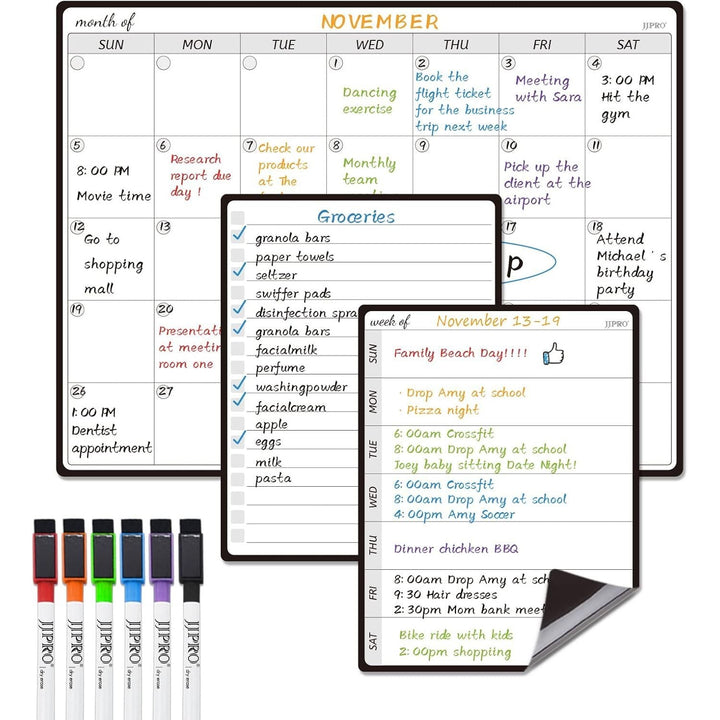 month of NOVEMBER JJPRO®
SUN MON TUE WED THU FRI SAT
1
Dancing
exercise
2
Book the
flight ticket
for the business
trip next week
3
Meeting
with Sara
4
3:00 PM
Hit the
gym
5
8:00 PM
Movie time
6
Research
report due
day !
7
Check our
products
at The
8
Monthly
team
9
10
Pick up the
client at the
airport
11
12
Go to
shopping
mall
13
17
p
18
Attend
Michael's
birthday
party
19
20
at
room one
26
1:00 PM
Dentist
appointment
27
Groceries
granola bars
paper towels
seltzer
swiffer pads
disinfection
granola bars
facialmilk
perfume
washingpowder
facialcream
apple
eggs
milk
pasta
week of November 13-19 JJPRO®
SUN
Family Beach Day!!!!
MON
· Drop Amy at school
· Pizza night
TUE
6:00am Crossfit
8:00am Drop Amy at school
Joey baby sitting Date Night!
WED
6:00am Crossfit
8:00am Drop Amy at school
4:00pm Amy Soccer
THU
Dinner chichken BBQ
FRI
8:00am Drop Amy at
9:30 Hair dresses
2:30pm Mom bank
SAT
Bike ride with kids
2:00pm shoppiing
JJPRO® dry erase
JJPRO® dry erase
JJPRO® dry erase
JJPRO® dry erase
JJPRO® dry erase
JJPRO® dry erase